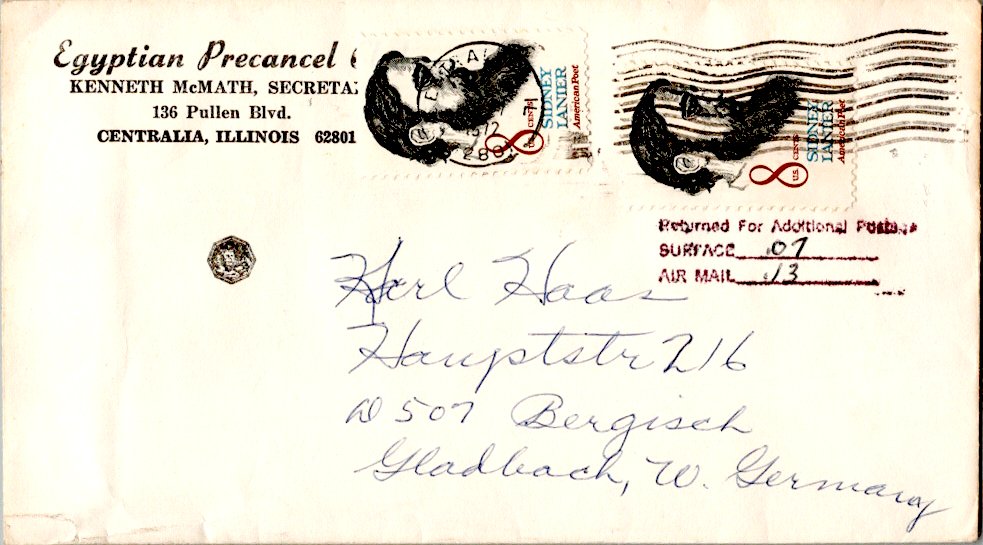 Egyptian Precancel
KENNETH McMATH, SECRETA
136 Pullen Blvd.
CENTRALIA, ILLINOIS 62801
1972
8 CENTS
SIDNEY
LANIER
American Poet
8 U.S. CENTS
SIDNEY
LANIER
American Poet
Returned For Additional Postage
SURFACE .07
AIR MAIL .13
Karl Haas
Hauptstr 216
D 507 Bergisch
Gladbach, W. Germany